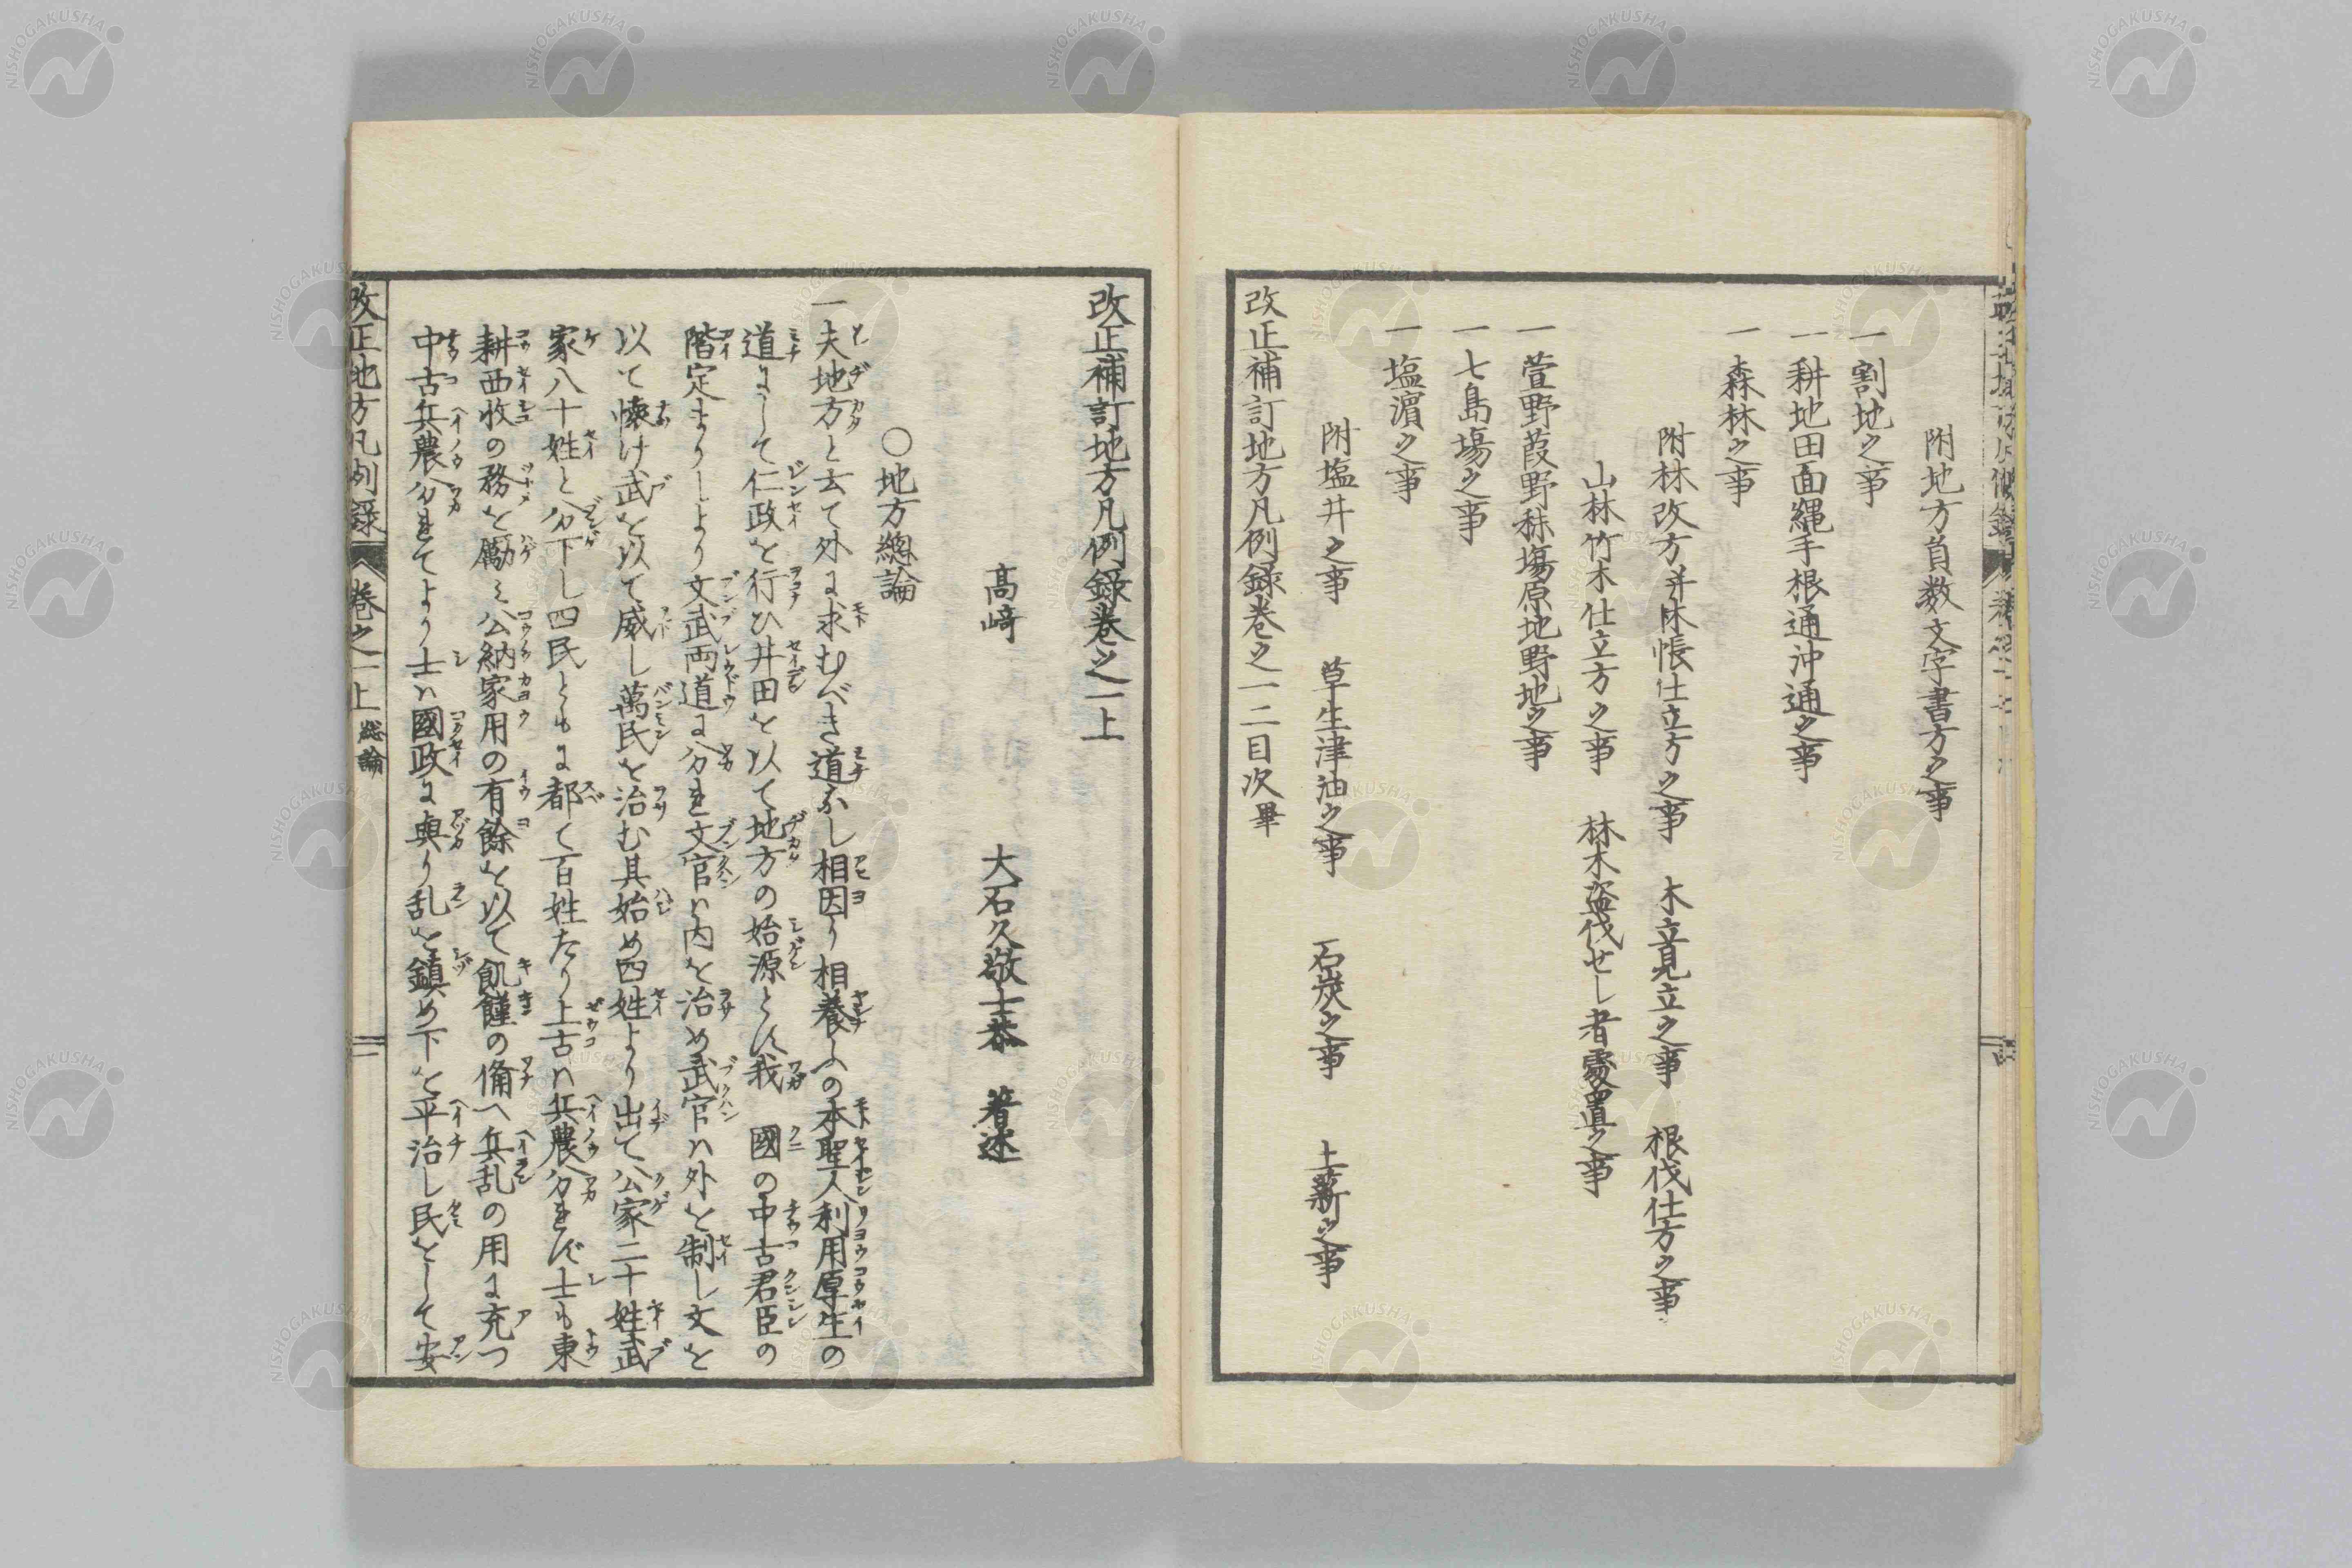 附地方負数文字書方之事
一割地之事
一耕地田面縄手根通沖通之事
一森林之事
附林改方并床帳仕立方之事 木立見立之事 根伐仕方之事
山林竹木仕立方之事 林木盗伐せし者處置之事
一萱野葭野秣場原地野地之事
一七島場之事
一塩濵之事
附塩井之事 草生津油之事 石炭之事 土薪之事
改正補訂地方凡例録巻之一二目次畢
改正補訂地方凡例録巻之一上
髙﨑 大石久敬士恭 著述
〇地方總論
一夫地方と云て外に求むべき道なし相因り相養ふの本聖人利用厚生の
道にして仁政を行ひ井田を以て地方の始源とす我 國の中古君臣の
階定まりしより文武両道に分れ文官ハ内を治め武官ハ外を制し文を
以て懐け武を以て威し萬民を治む其始め四姓より出て公家二十姓武
家八十姓と分下し四民ともに都て百姓たり上古ハ兵農分れず士も東
耕西收の務を勵み公納家用の有餘を以て飢饉の備へ兵乱の用に充つ
中古兵農分れてより士ハ國政に與り乱を鎮め下を平治し民をして安
改正地方凡例録 巻之一上 総論 一
NISHOGAKUSHA